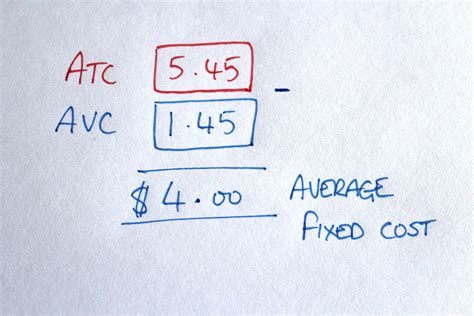 ATC 5.45 -
AVC 1.45
$4.00 AVERAGE
FIXED COST